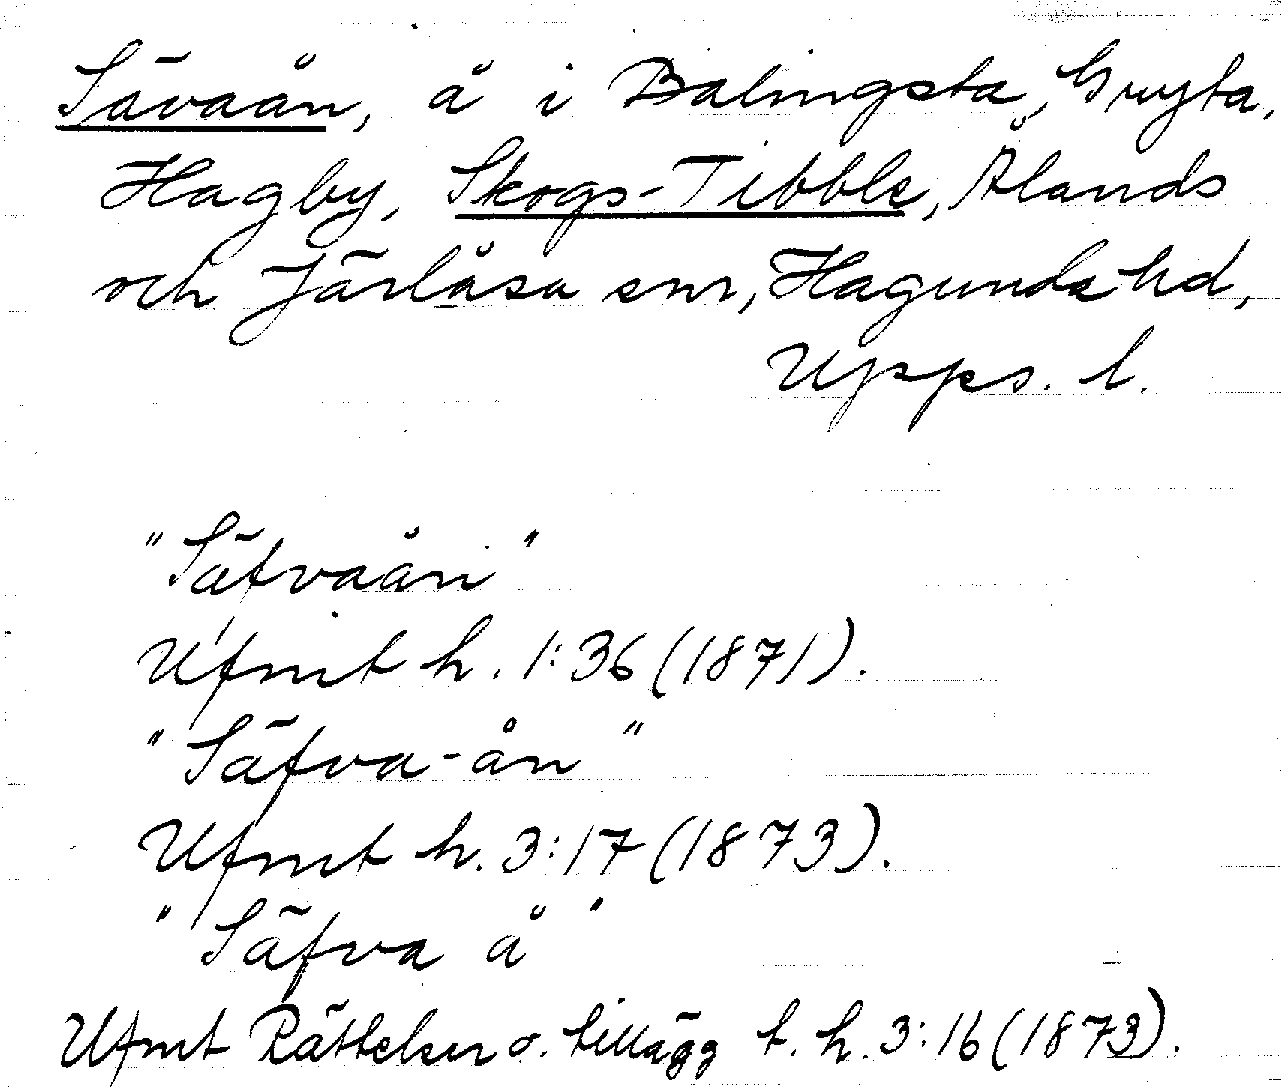 Sävaån, å i Balingsta, Gryta,
Hagby, Skogs-Tibble, Ålands
och Järlåsa snr, Hagunda hd,
Upps. l.
"Säfvaån"
Ufmt h. 1:36 (1871).
"Säfva-ån"
Ufmt h. 3:17 (1873).
"Säfva å"
Ufmt Rättelser o. tillägg t. h. 3:16 (1873).